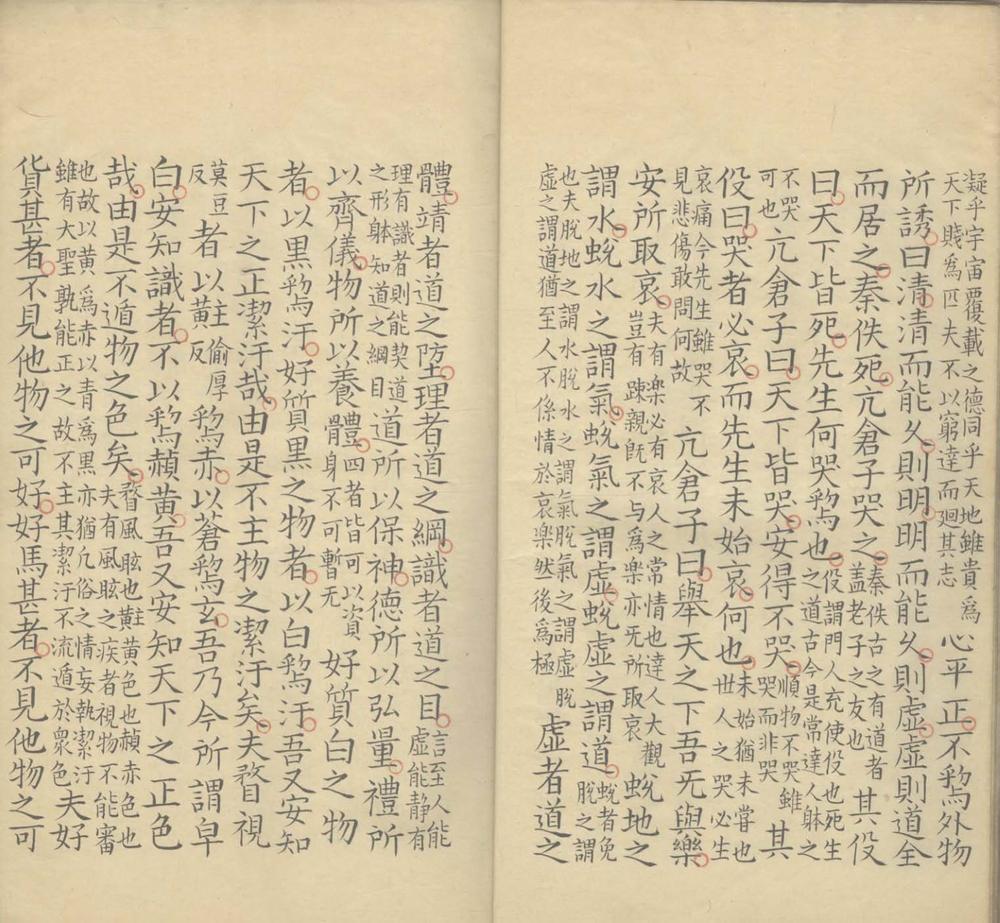 凝乎宇宙覆載之德同乎天地雖貴爲
天下賤爲匹夫不以窮達而廻其志
心平正不爲外物
所誘曰清清而能久則明明而能久則虛虛則道全
而居之秦佚死亢倉子哭之
秦佚古之有道者
蓋老子之友也
其役
曰天下皆死先生何哭爲也
役謂門人充使役也死生
之道古今是常達人躰之
不哭
可也
亢倉子曰天下皆哭安得不哭
順物不哭雖
哭而非哭
其
役曰哭者必哀而先生未始哀何也
未始猶未嘗也
世人之哭必生
哀痛今先生雖哭不
見悲傷敢問何故
亢倉子曰舉天之下吾旡與樂
安所取哀
夫有樂必有哀人之常情也達人大觀
豈有踈親旣不与爲樂亦旡所取哀
蛻地之
謂水蛻水之謂氣蛻氣之謂虛蛻虛之謂道
蛻者免
脫之謂
也夫脫地之謂水脫水之謂氣脫氣之謂虛脫
虛之謂道猶至人不係情於哀樂然後爲極
虛者道之
體靖者道之防理者道之綱識者道之目
言至人能
虛能静有
理有識者則能契道
之形躰知道之綱目
道所以保神德所以弘量禮所
以齊儀物所以養體
四者皆可以資
身不可暫无
好質白之物
者以黑爲汙好質黑之物者以白爲汙吾又安知
天下之正潔汙哉由是不主物之潔汙矣夫瞀視
莫豆
反
者以黈
偷厚
反
爲赤以蒼爲玄吾乃今所謂皁
白安知識者不以爲赬黃吾又安知天下之正色
哉由是不遁物之色矣
瞀風眩也黈黃色也赬赤色也
夫有風眩之疾者視物不能審
也故以黃爲赤以青爲黑亦猶凢俗之情妄執潔汙
雖有大聖孰能正之故不主其潔汙不流遁於衆色
夫好
貨甚者不見他物之可好好馬甚者不見他物之可